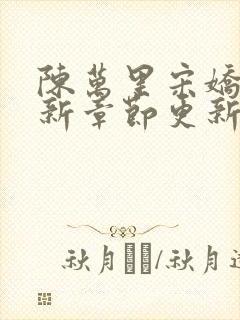 陳萬里宋嬌
新章節更新
秋月□□/秋月